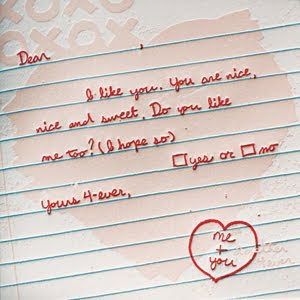 XOXO
XOXO
Dear
I like you. You are nice,
nice and sweet. Do you like
me too? (I hope so)
□ yes or □ no
Yours 4-ever,
me
+
you
4ever